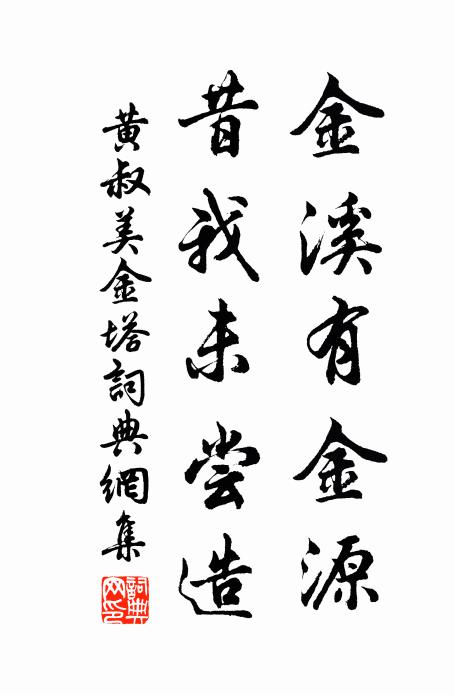 金溪有金源
昔我未尝造
黄叔美金塔詞典網集
詞典網印